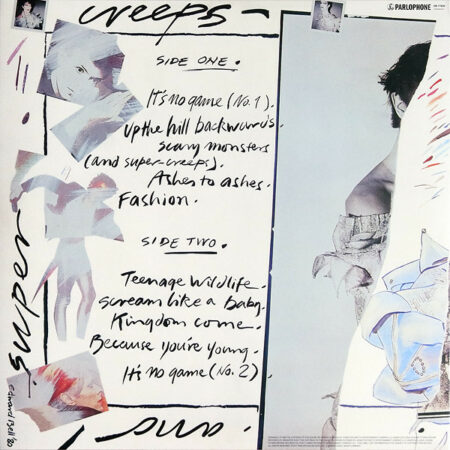 creeps -
PARLOPHONE
SIDE ONE.
It's no game (No. 1).
Up the hill backwards.
Scary monsters
(and super-creeps).
Ashes to ashes.
Fashion.
SIDE TWO.
Teenage Wildlife.
Scream like a Baby.
Kingdom come.
Because you're young.
It's no game (No. 2)
super
and
edward Bell '80